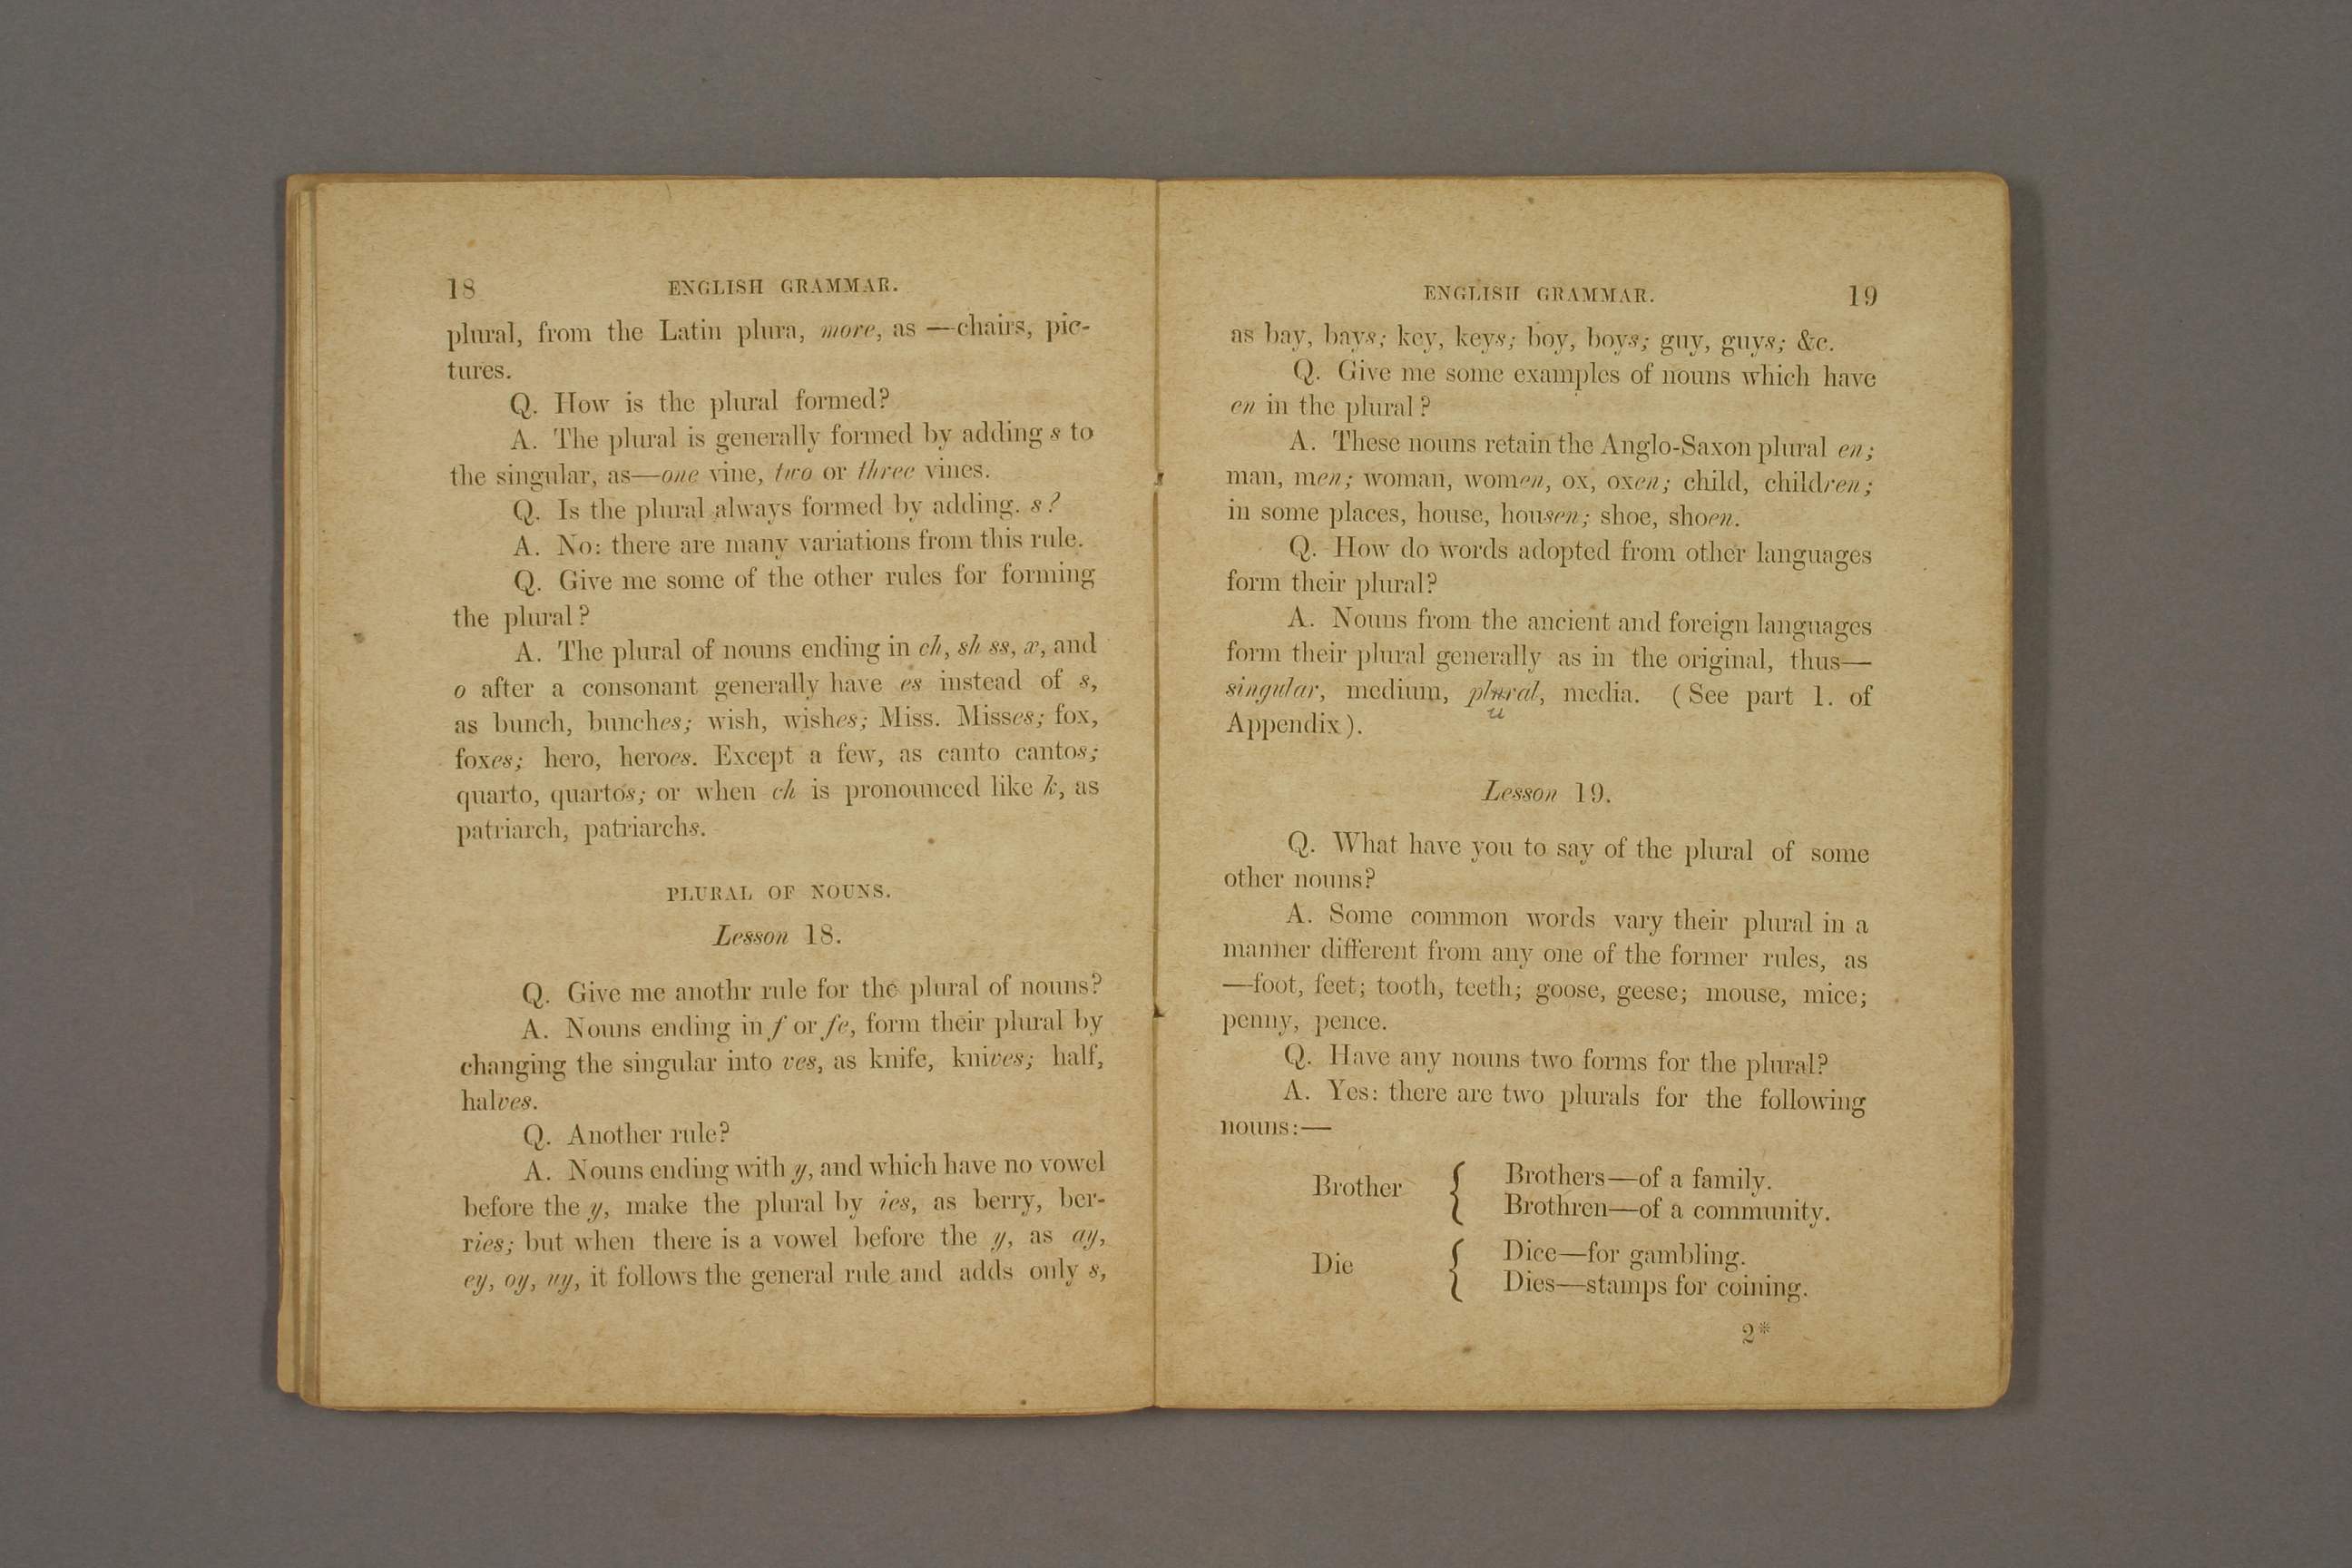 18 ENGLISH GRAMMAR.
plural, from the Latin plura, more, as —chairs, pic-
tures.
Q. How is the plural formed?
A. The plural is generally formed by adding s to
the singular, as—one vine, two or three vines.
Q. Is the plural always formed by adding. s?
A. No: there are many variations from this rule.
Q. Give me some of the other rules for forming
the plural?
A. The plural of nouns ending in ch, sh ss, x, and
o after a consonant generally have es instead of s,
as bunch, bunches; wish, wishes; Miss. Misses; fox,
foxes; hero, heroes. Except a few, as canto cantos;
quarto, quartos; or when ch is pronounced like k, as
patriarch, patriarchs.
PLURAL OF NOUNS.
Lesson 18.
Q. Give me anothr rule for the plural of nouns?
A. Nouns ending in f or fe, form their plural by
changing the singular into ves, as knife, knives; half,
halves.
Q. Another rule?
A. Nouns ending with y, and which have no vowel
before the y, make the plural by ies, as berry, ber-
ries; but when there is a vowel before the y, as ay,
ey, oy, uy, it follows the general rule and adds only s,
ENGLISH GRAMMAR. 19
as bay, bays; key, keys; boy, boys; guy, guys; &c.
Q. Give me some examples of nouns which have
en in the plural?
A. These nouns retain the Anglo-Saxon plural en;
man, men; woman, women, ox, oxen; child, children;
in some places, house, housen; shoe, shoen.
Q. How do words adopted from other languages
form their plural?
A. Nouns from the ancient and foreign languages
form their plural generally as in the original, thus—
singular, medium, plural, media. (See part 1. of
u
Appendix).
Lesson 19.
Q. What have you to say of the plural of some
other nouns?
A. Some common words vary their plural in a
manner different from any one of the former rules, as
—foot, feet; tooth, teeth; goose, geese; mouse, mice;
penny, pence.
Q. Have any nouns two forms for the plural?
A. Yes: there are two plurals for the following
nouns:—
Brother { Brothers—of a family.
Brothren—of a community.
Die { Dice—for gambling.
Dies—stamps for coining.
2*